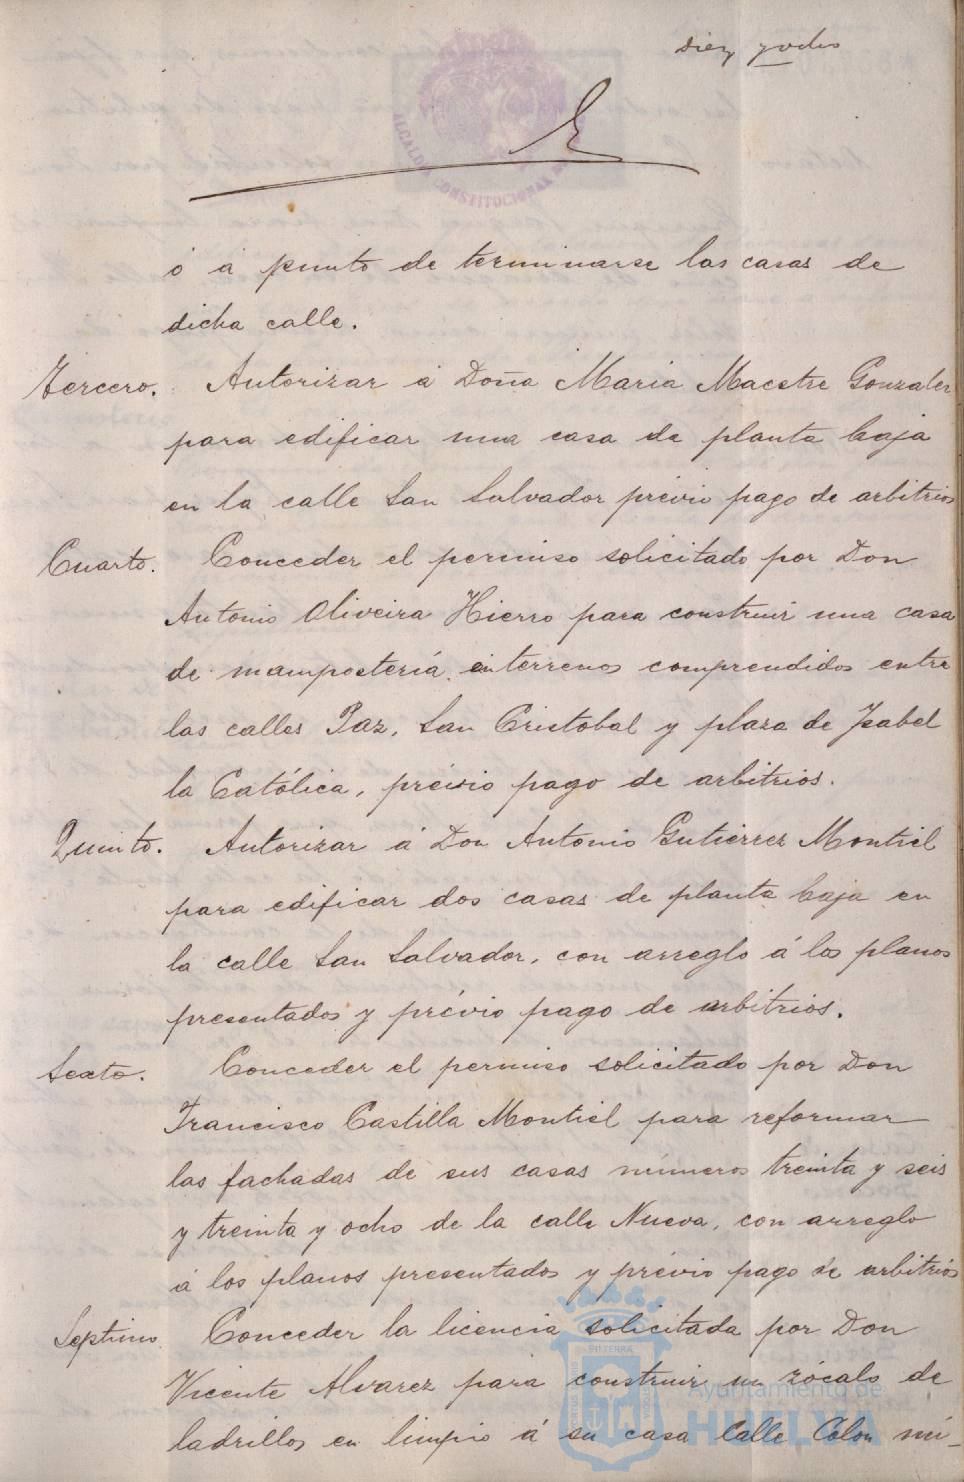 Diez y ocho
ALCALDIA CONSTITUCIONAL
ó á punto de terminarse las casas de
dicha calle.
Tercero. Autorizar á Doña Maria Maestre Gonzalez
para edificar una casa de planta baja
en la calle San Salvador prévio pago de arbitrios
Cuarto. Conceder el permiso solicitado por Don
Antonio Oliveira Hierro para construir una casa
de mampostería en terrenos comprendidos entre
las calles Paz, San Cristobal y plaza de Isabel
la Católica, prévio pago de arbitrios.
Quinto. Autorizar á Don Antonio Gutierrez Montiel
para edificar dos casas de planta baja en
la calle San Salvador, con arreglo á los planos
presentados y prévio pago de arbitrios.
Sexto. Conceder el permiso solicitado por Don
Francisco Castilla Montiel para reformar
las fachadas de sus casas números treinta y seis
y treinta y ocho de la calle Nueva, con arreglo
á los planos presentados y prévio pago de arbitrios
Septimo. Conceder la licencia solicitada por Don
Vicente Alvarez para construir un zócalo de
ladrillos en limpio á su casa Calle Colon nú-
Ayuntamiento de
HUELVA